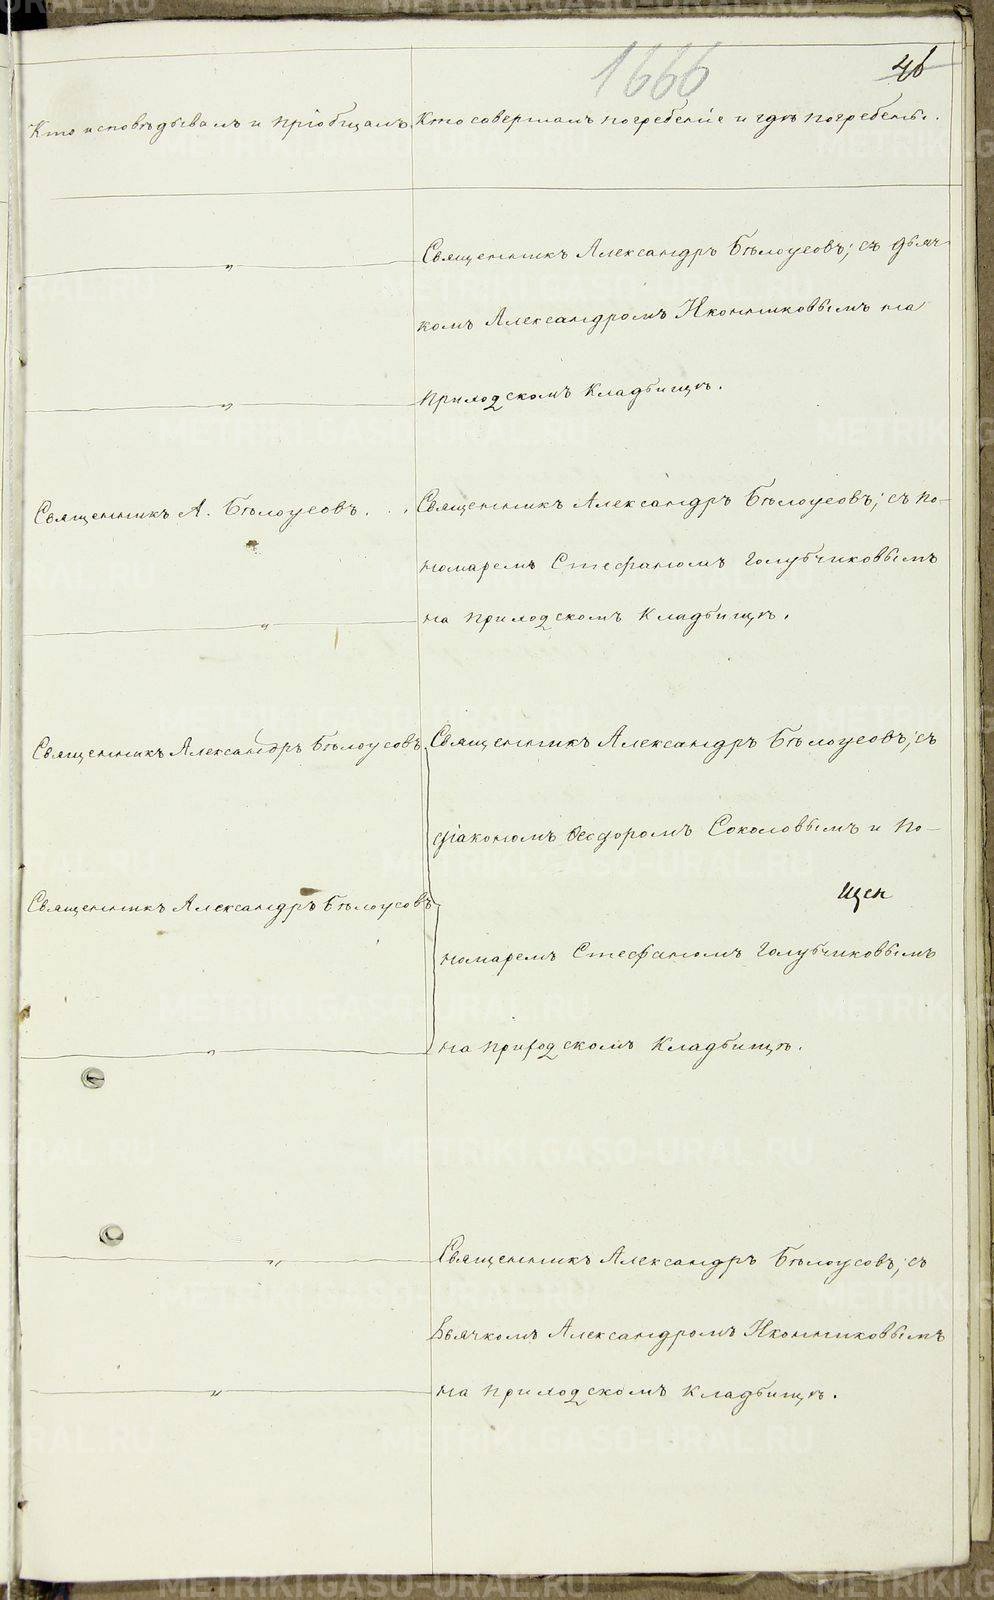 1666
46
Кто исповѣдывалъ и пріобщалъ.
Кто совершалъ погребеніе и гдѣ погребены.
Священникъ Александръ Бѣлоусовъ, съ дьяч-
комъ Александромъ Иконниковымъ на
приходскомъ кладбищѣ.
Священникъ А. Бѣлоусовъ. . .
Священникъ Александръ Бѣлоусовъ, съ по-
номаремъ Стефаномъ Голубчиковымъ
на приходскомъ кладбищѣ.
Священникъ Александръ Бѣлоусовъ.
Священникъ Александръ Бѣлоусовъ, съ
діакономъ Ѳеодоромъ Соколовымъ и по-
Щен
Священникъ Александръ Бѣлоусовъ
номаремъ Стефаномъ Голубчиковымъ
на приходскомъ кладбищѣ.
Священникъ Александръ Бѣлоусовъ, съ
дьячкомъ Александромъ Иконниковымъ
на приходскомъ кладбищѣ.
METRIKI.GASO-URAL.RU